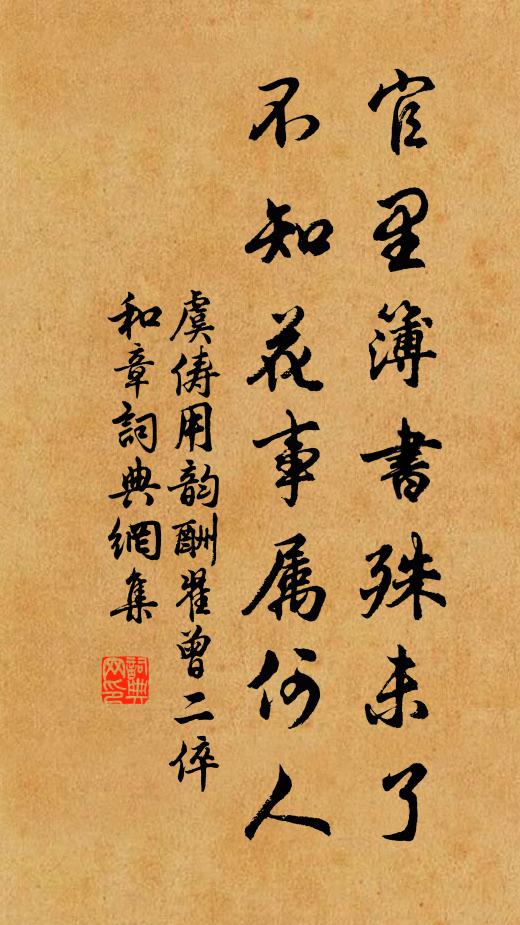 官里簿書殊未了
不知花事属何人
虞俦用韵酬翟曾二倅
和章詞典網集
詞典网印